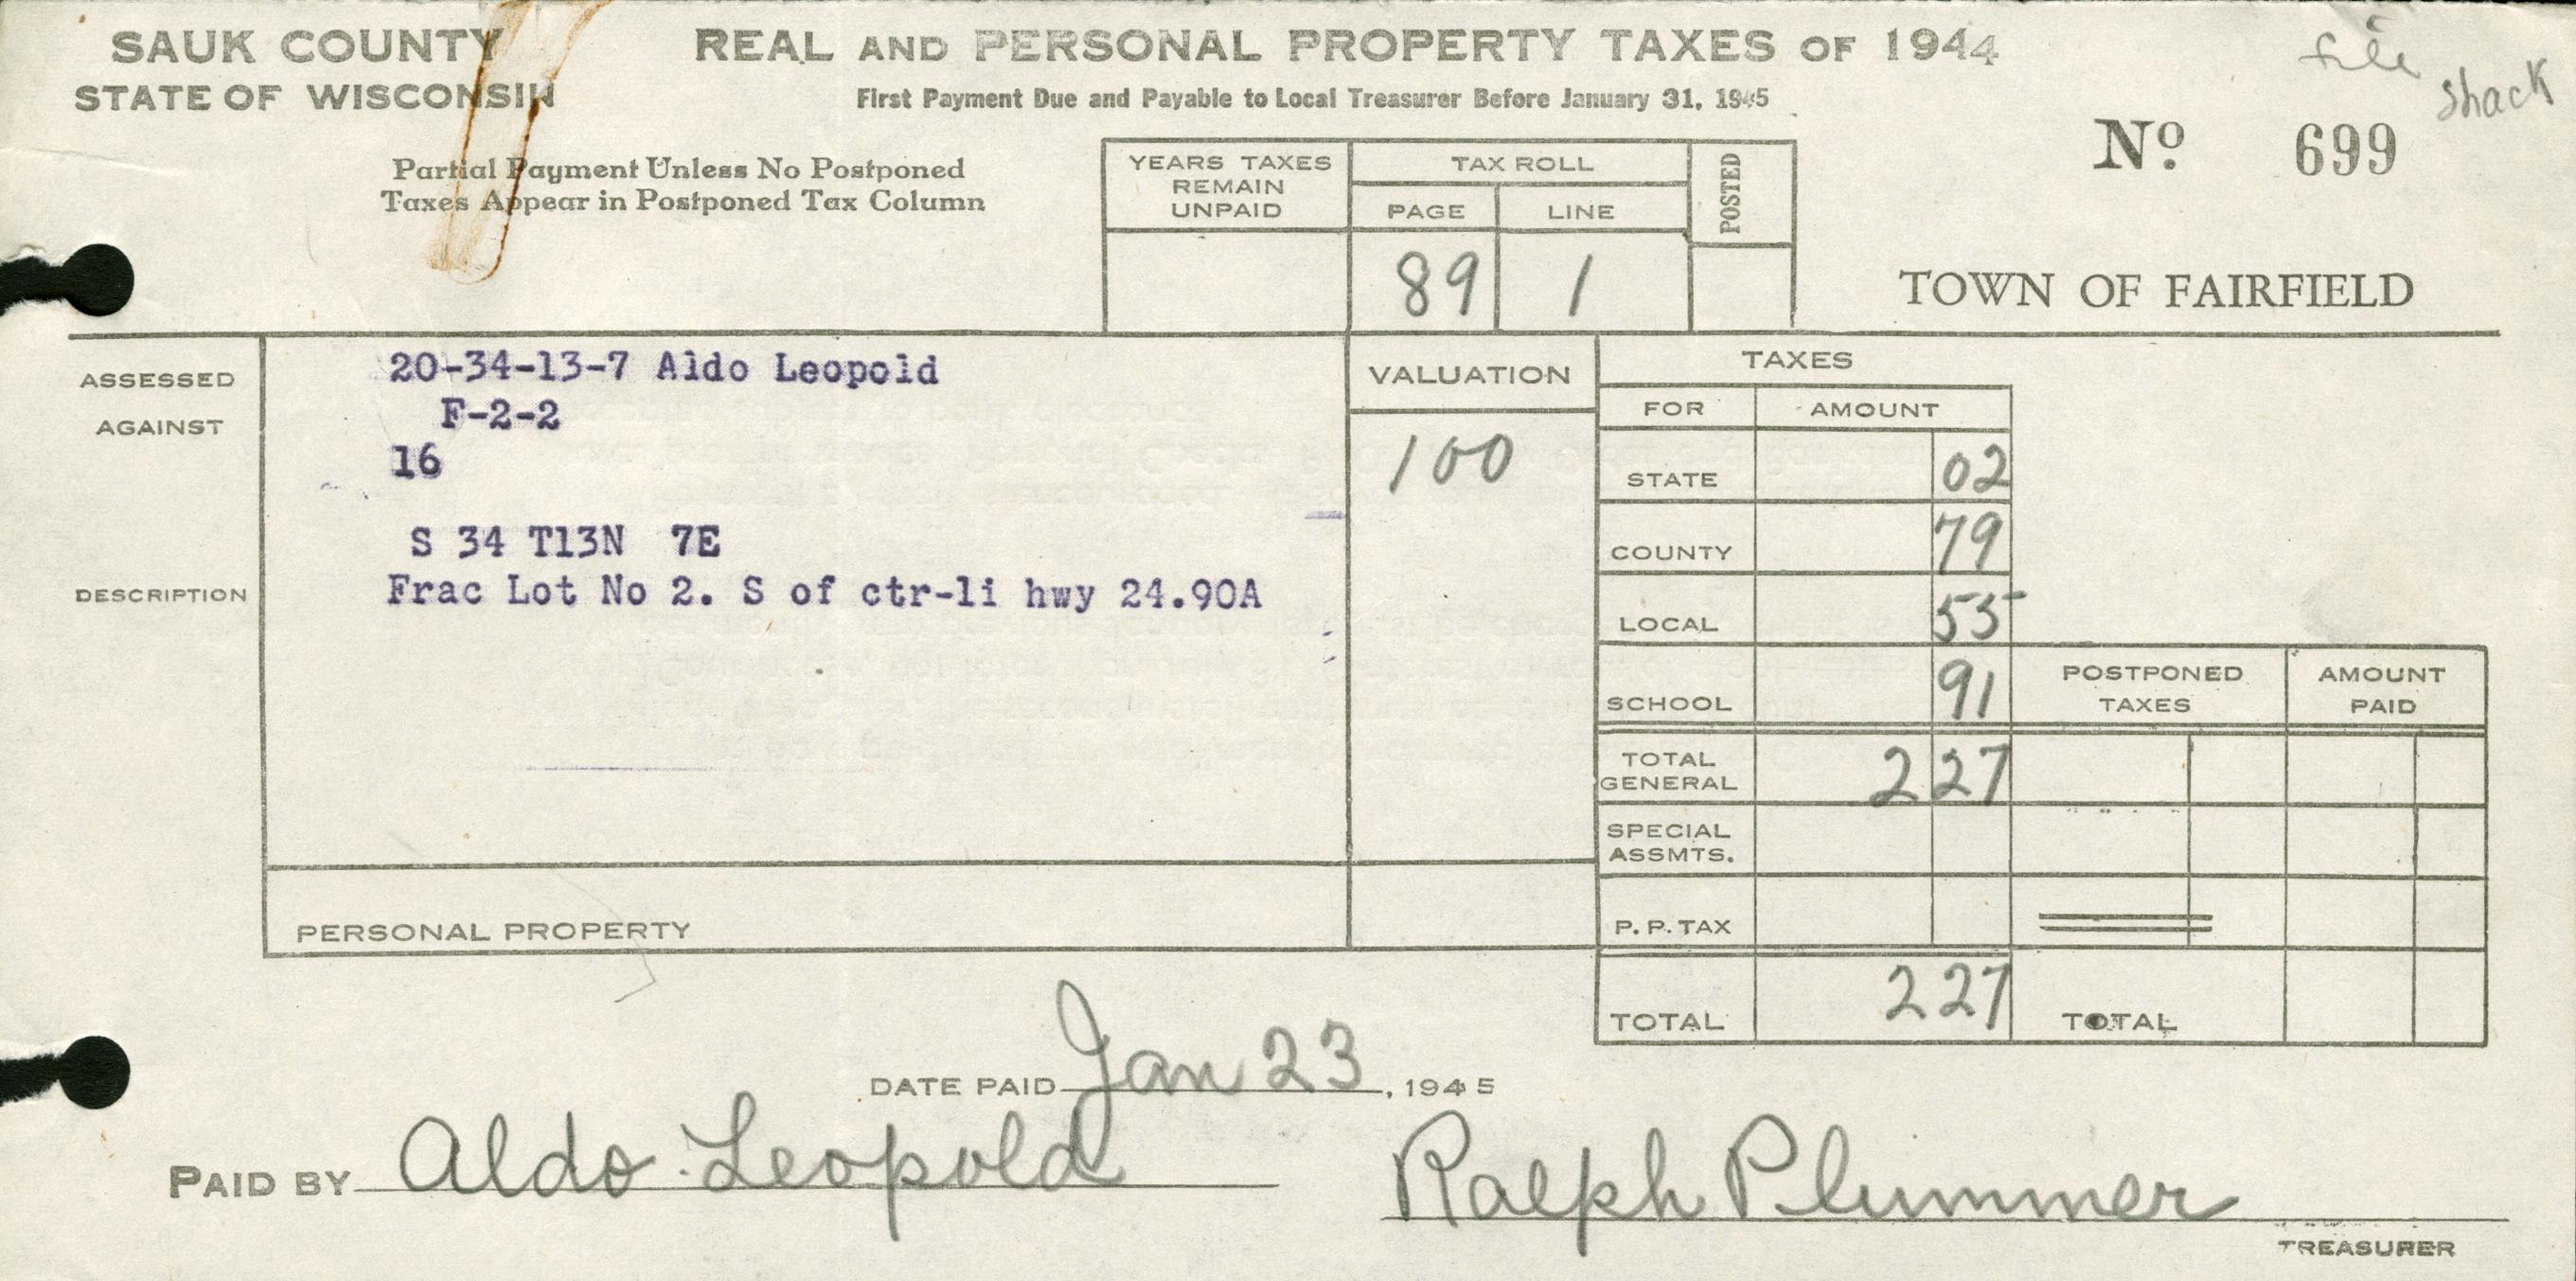 SAUK COUNTY
STATE OF WISCONSIN
REAL AND PERSONAL PROPERTY TAXES OF 1944
First Payment Due and Payable to Local Treasurer Before January 31, 1945
file
shack
Partial Payment Unless No Postponed
Taxes Appear in Postponed Tax Column
YEARS TAXES REMAIN UNPAID
TAX ROLL
PAGE LINE
POSTED
89 1
No. 699
TOWN OF FAIRFIELD
ASSESSED
AGAINST
20-34-13-7 Aldo Leopold
F-2-2
16
DESCRIPTION
S 34 T13N 7E
Frac Lot No 2. S of ctr-li hwy 24.90A
PERSONAL PROPERTY
VALUATION
100
TAXES
FOR AMOUNT
STATE 02
COUNTY 79
LOCAL 55
SCHOOL 91
POSTPONED TAXES
AMOUNT PAID
TOTAL GENERAL 2 27
SPECIAL ASSMTS.
P. P. TAX
TOTAL 2 27 TOTAL
DATE PAID Jan 23, 1945
PAID BY Aldo Leopold
Ralph Plummer
TREASURER